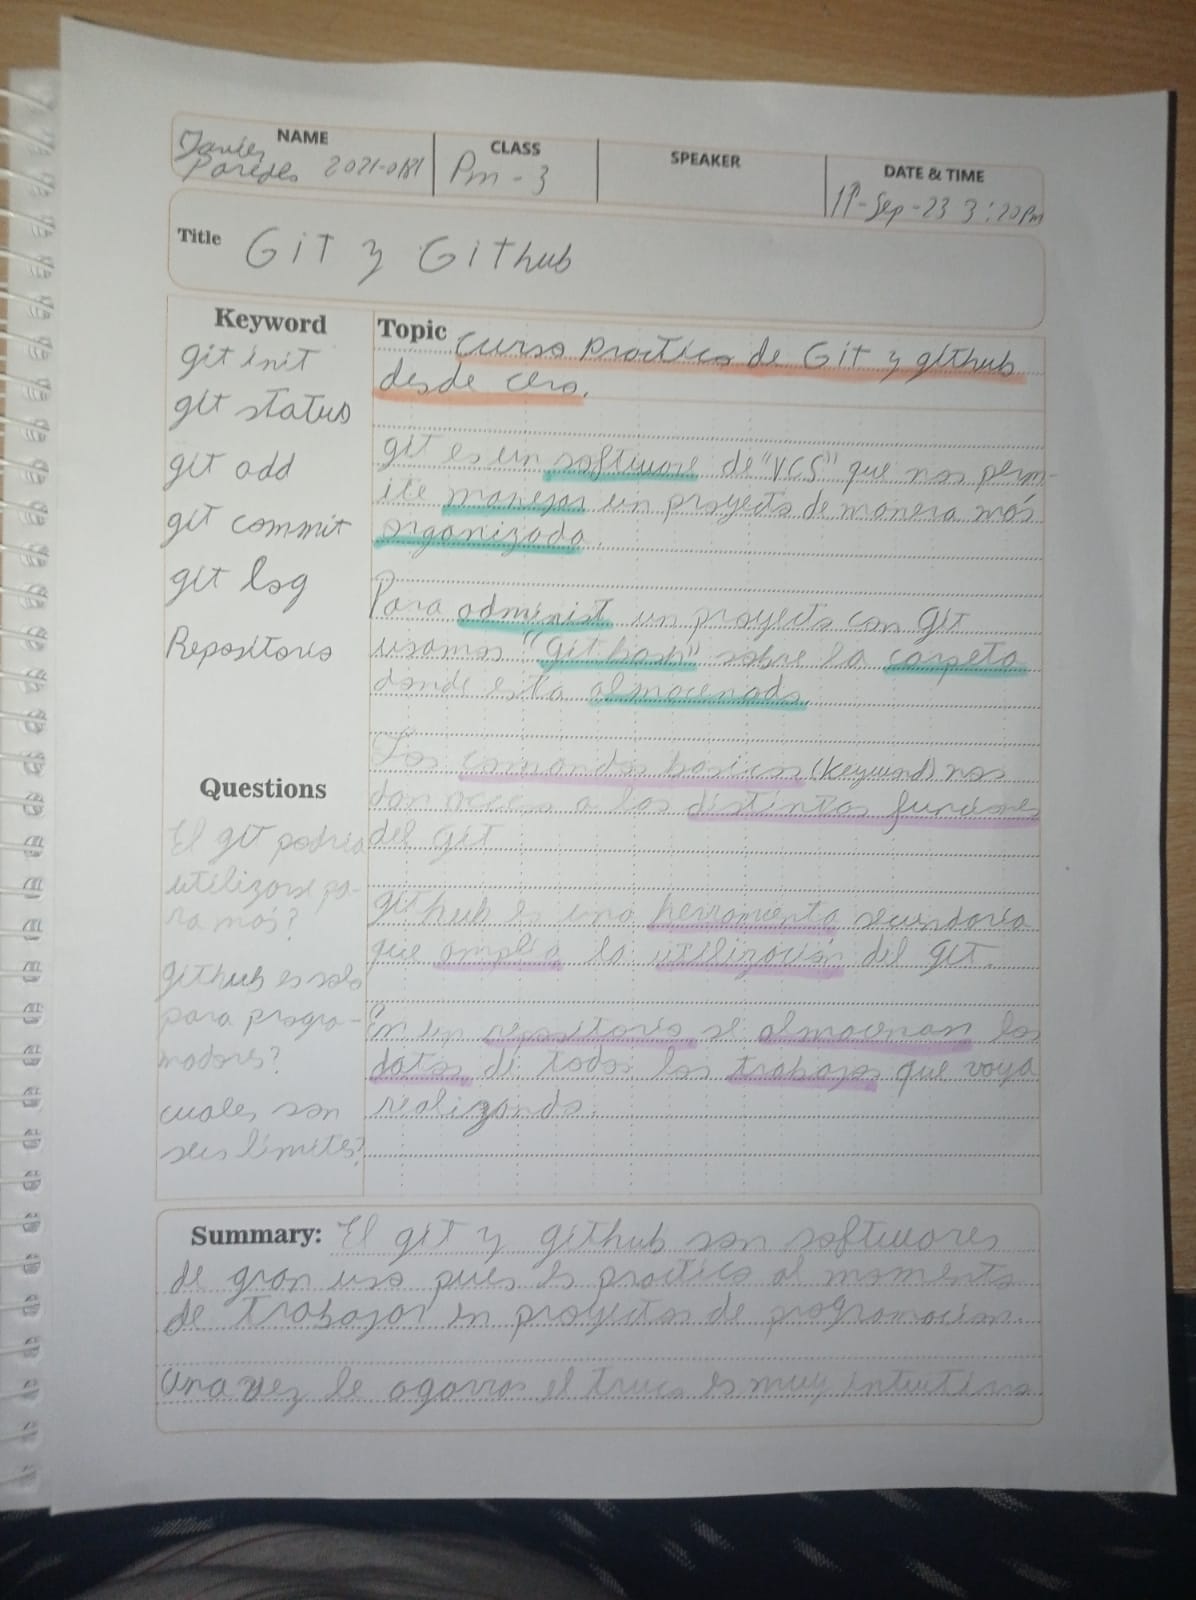 NAME
CLASS
SPEAKER
DATE & TIME
Paredes 2021-0181
Pm - 3
Sep-23 3:20Pm
Title Git y Github
Keyword
git init
git status
git add
git commit
git log
Repositorio
Questions
El git podria
utilizarse pa-
ra más?
github es solo
para progra-
madores?
cuales son
sus limites?
Topic Curso practico de Git y github
desde cero.
git es un software de "VCS" que nos perm-
ite manejar un proyecto de manera más
organizada.
Para administ un proyecto con git
usamos "git bash" sobre la carpeta
donde esta almacenado.
Los comandos basicos (keyword) nos
dan acceso a las distintas funciones
del git
github es una herramienta secundaria
que amplia la utilización del git.
En un repositorio se almacenan los
datos de todos los trabajos que vaya
realizando.
Summary: El git y github son softwares
de gran uso pues es practico al momento
de trabajar en proyectos de programacion.
una vez le agarras el truco es muy intuitivo